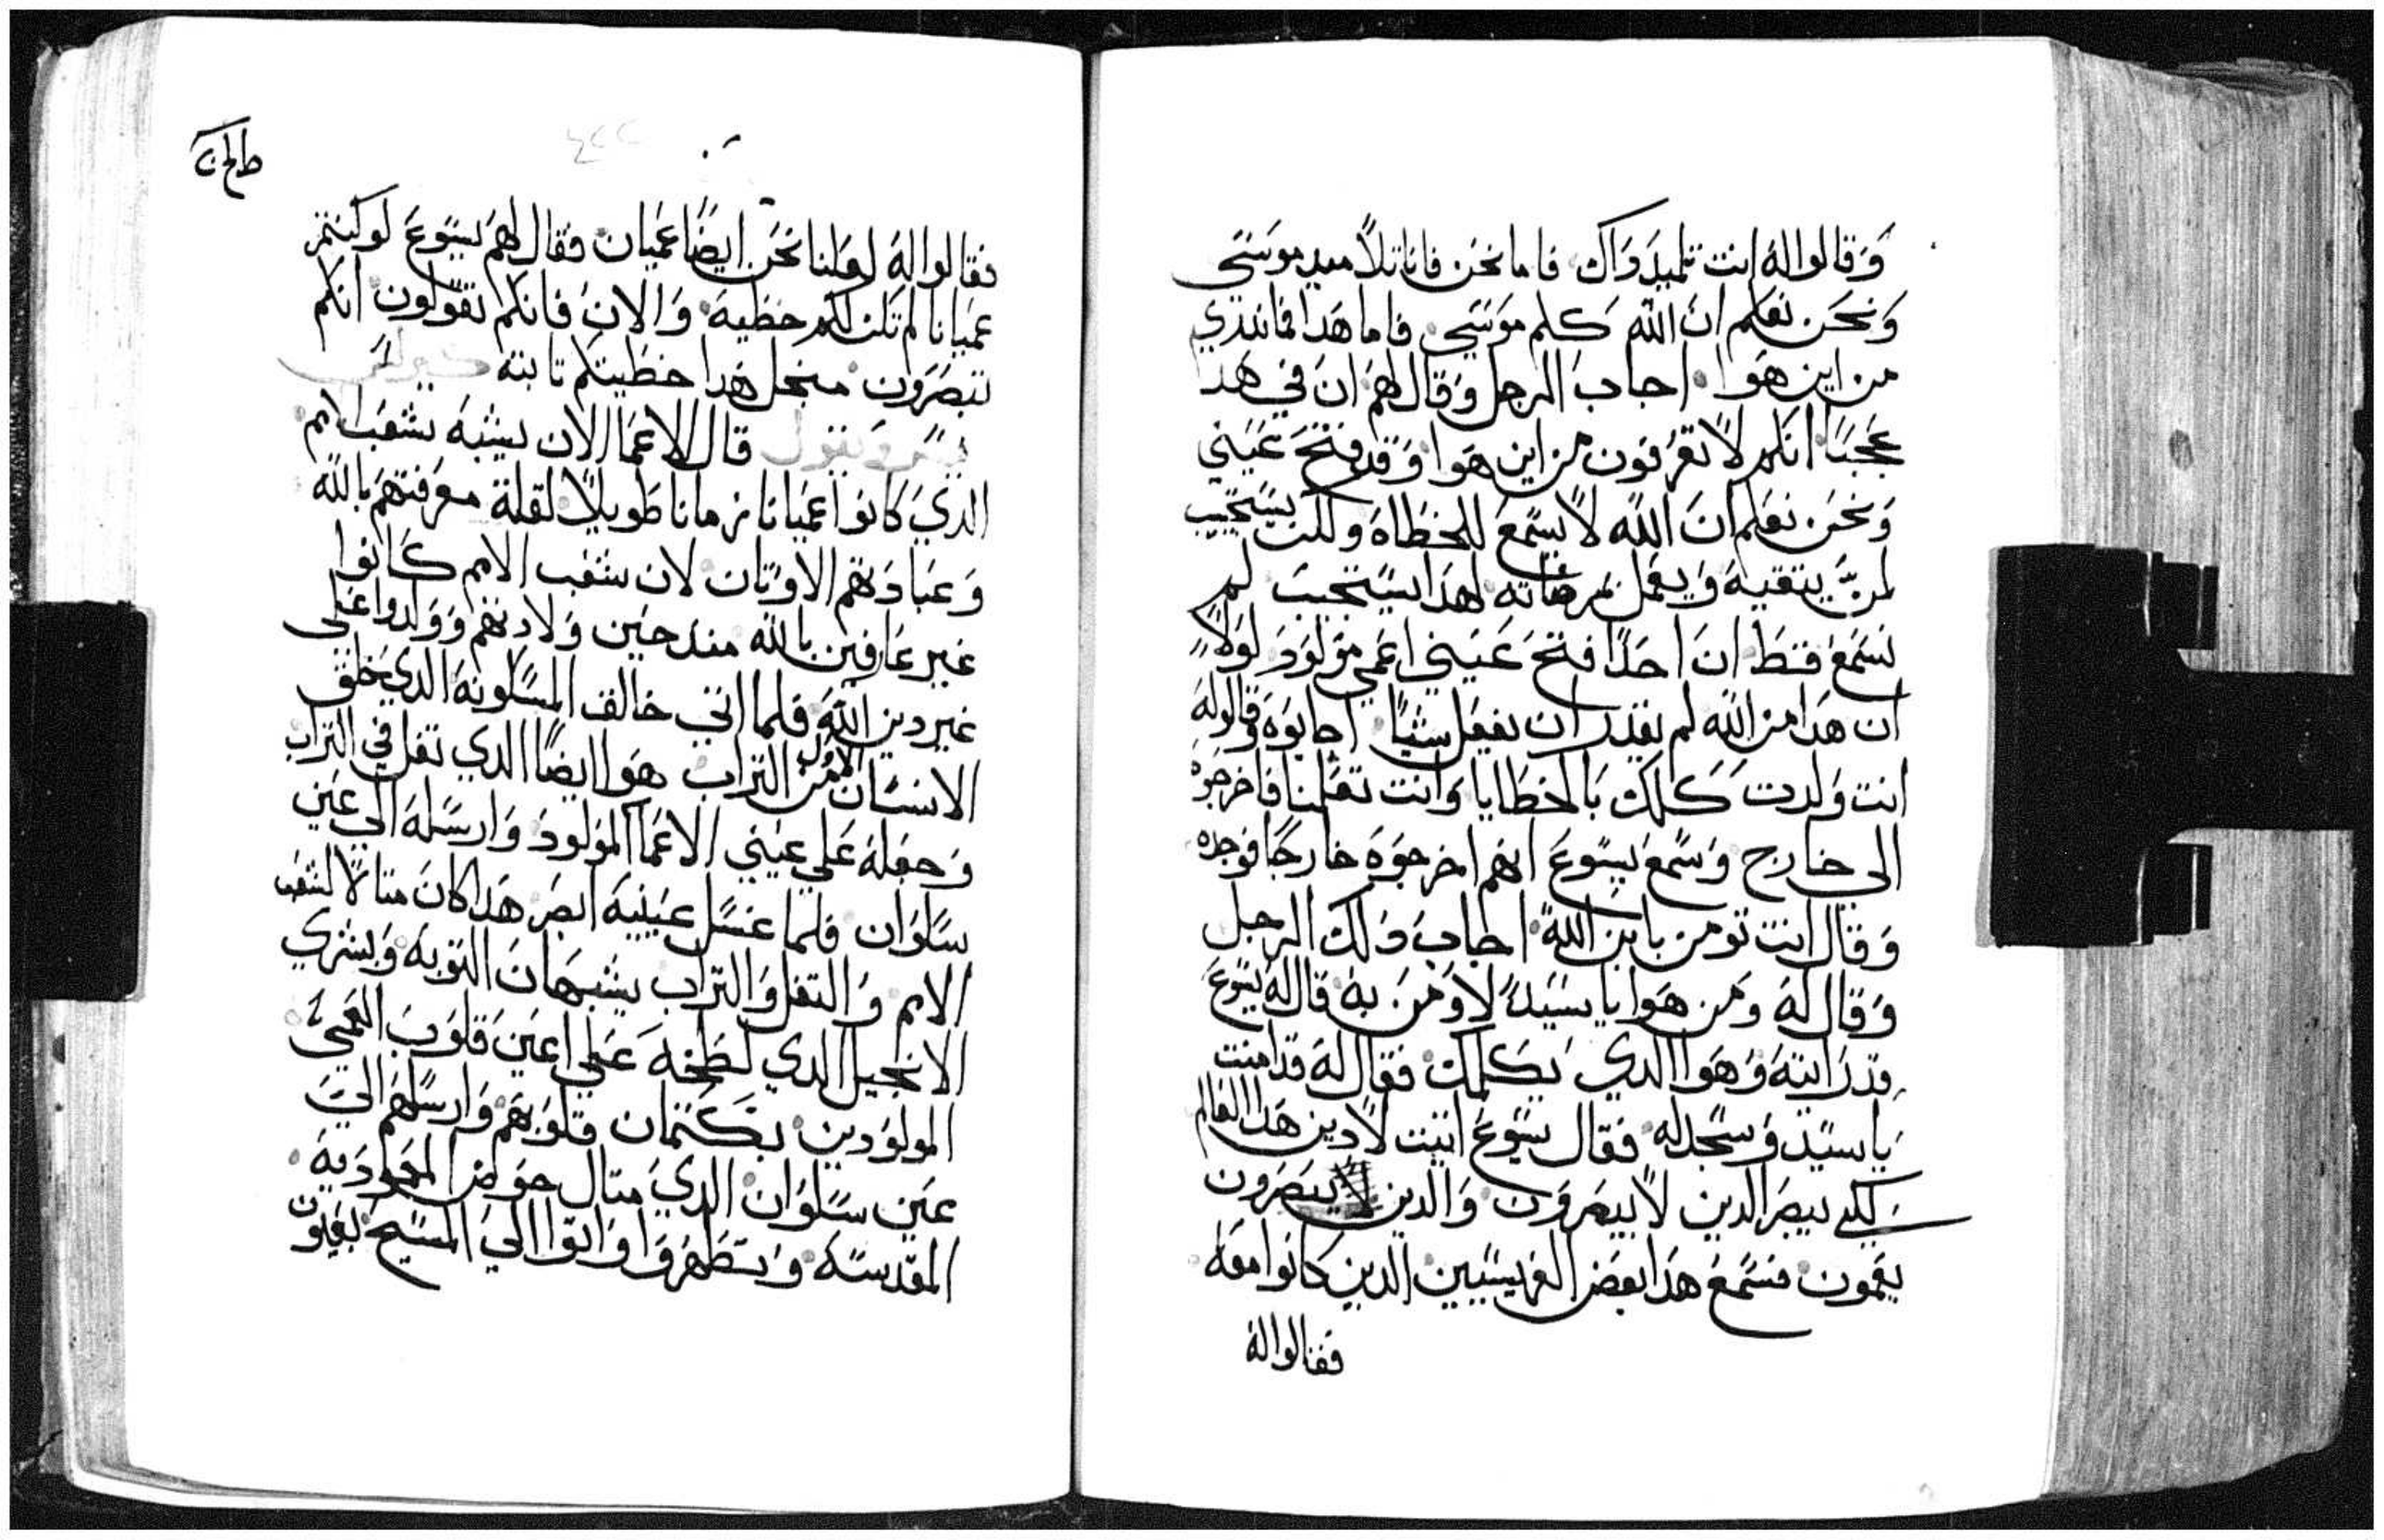 وَقالوا لهُ انت تلميد دَاك فاما نحن فانا تلاميد موسَى
وَنحَن نعَلم ان الله كلم موسَى فاما هَدا فما ندري
من اين هَوا اجاب الرجل وَقال لهمَ ان في هَدا
عَجَبًا انكم لا تعَرفون من اين هَوا وَقد فتحَ عَيني
وَنحَن نعَلم انَ الله لا يسَمعَ للخطاهَ ولكن يسَتجيب
لمن يتقيهَ وَيعَمل بمرضاته لهَدا يسَتجيب لم
نسَمعَ قط انَ احَدًا فتحَ عَيني اعَمي مَولودَ لوَلا
ان هَدا من الله لم يقدر ان يفعَل شيًا اجابوَهَ وَقالوا لهَ
انت وَلدت كلك بالخطايا وَانت تعَلمنا فاخرجوَهَ
الي خارج وَسَمعَ يسَوعَ انهم اخرجوَهَ خارجًا فوجدهَ
وَقال انت تومن بابن الله اجاب دَلك الرجل
وَقال لهَ وَمن هَوا يا سَيدَ لاومَن بهَ قال لهَ يسَوعَ
قد رَايتهَ وَهَوا الدي يكلمك فقال لهَ قد امنت
يا سَيد وَسَجد له فقال يسَوعَ اتيت لادين هَدا العَالم
لكي يبصرَ الدين لا يبصرَون وَالدين يبصَرون
يعَمون فسَمعَ هَدا بعَض الفريسَيين الدين كانوا معَهَ
فقالوا لهَ
فقالوا لهَ لعَلنا نحَن ايضًا عَميان فقال لهمَ يسَوعَ لو كنتم
عَميانا لم تكن لكم خطيهَ وَالان فانكم تقوَلون انكم
تبصَرَون منجل هَدا خطيتكم تابتهَ
قال الاعَما الان يشبهَ شعَب الامم
الدي كانوا عَميانا زمانا طويلًا لقلة معَرفتهَم بالله
وَعَبادَتهَم الاوتان لان شعَب الامم كانوا
غير عَارفين بالله مند حَين وَلادتهَم وَولدوا عَلى
غير دين الله فلما اتي خالف المسلونهَ الدي خلق
الانسَان من التراب هَوا ايضًا الدي تفل في التراب
وَجعَلهَ عَلي عَيني الاعَما الموَلودَ وَارسَلهَ الي عَين
سَلوَان فلما غسَل عَينيهَ ابصرَ هَدا كانَ متالا لشعَب
الامم وَ التفل وَالتراب يشبهَان التوبهَ وَبشري
الانجيل الدي لطخهَ عَلي اعَين قلوَب العَميَ
الموَلوَدين بكتمان قلوَبهَم وَارسَلهَم الي
عَين سَلوَان الدي متال حَوض المعَموَديهَ
المقدسَهَ وَتطهَروَا وَاتوا الي المسَيح